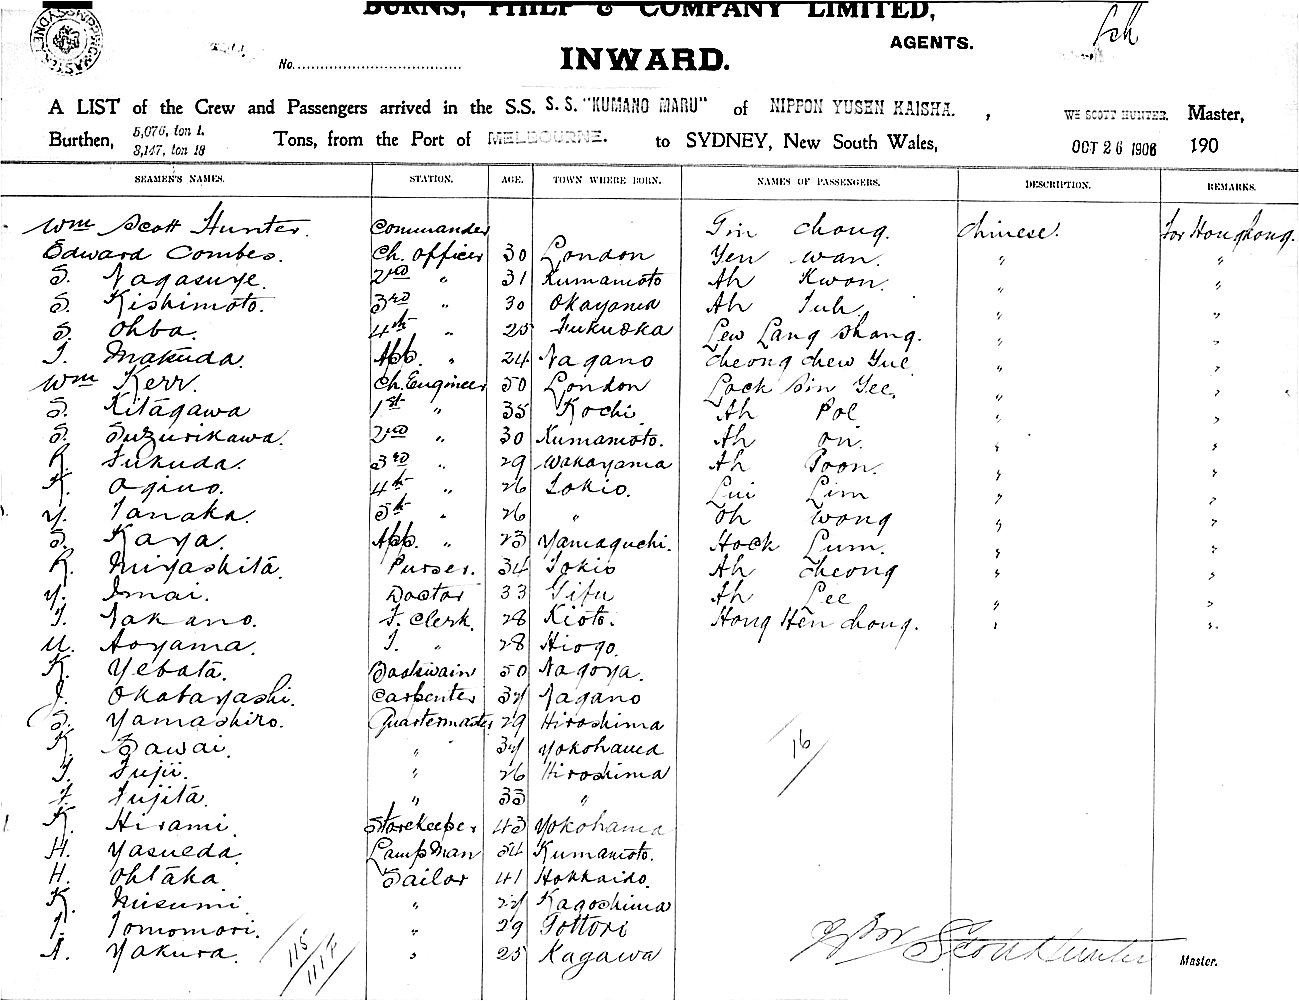 BURNS, PHILP & COMPANY LIMITED,
AGENTS.
No.
INWARD.
A LIST of the Crew and Passengers arrived in the S.S. S. S. "KUMANO MARU" of NIPPON YUSEN KAISHA. , WM SCOTT HUNTER. Master,
Burthen, 5,076, ton 1. 3,147, ton 18 Tons, from the Port of MELBOURNE. to SYDNEY, New South Wales, OCT 26 1906 190
SEAMEN'S NAMES. STATION. AGE. TOWN WHERE BORN. NAMES OF PASSENGERS. DESCRIPTION. REMARKS.
Wm Scott Hunter. Commander Tin Chong. Chinese. For Hongkong.
Edward Combes. Ch. Officer 30 London Yen Wan. " "
S. Nagasuye. 2nd " 31 Kumamoto Ah Kwon. " "
S. Kishimoto. 3rd " 30 Okayama Ah " "
S. Ohba. 4th " 25 Fukuoka Lew Lang Shang. " "
T. Makuda. App. " 24 Nagano Cheong Chew Yue. " "
Wm Kerr. Ch. Engineer 50 London Lock Sin Yee. " "
S. Kitagawa 1st " 35 Kochi. Ah Pol " "
S. Suzurikawa. 2nd " 30 Kumamoto. Ah On. " "
R. Fukuda. 3rd " 29 Wakayama Ah Poon. " "
K. Ogino. 4th " 26 Tokio. Lui Lim " "
Y. Tanaka. 5th " 26 " Oh Wong " "
S. Kaya. App. " 23 Yamaguchi. Hock Lum. " "
R. Miyashita. Purser. 34 Tokio Ah Cheong " "
Y. Imai. Doctor 33 Gifu Ah Lee " "
T. Nakano. F. Clerk. 28 Kioto. Hong Hen Chong. " "
U. Aoyama. F. " 28 Hiogo.
K. Yebata. Boatswain 50 Nagoya.
J. Okabayashi. Carpenter 34 Nagano
S. Yamashiro. Quartermaster 29 Hiroshima
K. Sawai. " 34 Yokohama 16
T. Fujii. " 26 Hiroshima
F. Fujita. " 33 "
K. Hirami. Storekeeper 43 Yokohama
H. Yasueda. Lamp Man 34 Kumamoto.
H. Ohtaka Sailor 41 Hokkaido.
K. Misumi. " 24 Kagoshima
T. Tomomori. " 29 Tottori
A. Yakura. " 25 Kagawa
115
Wm Scott Hunter Master.